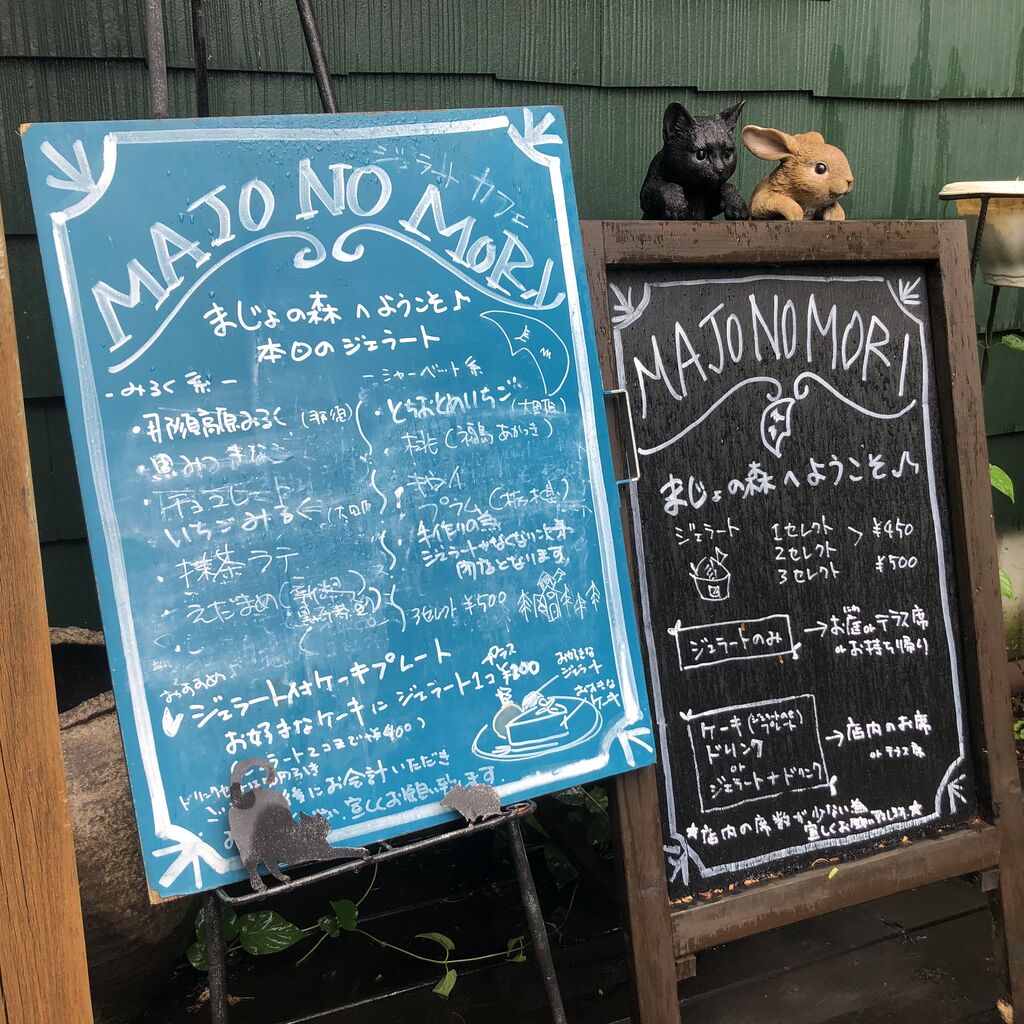 ジェラート カフェ
MAJO NO MORI
まじょの森へようこそ♪
本日のジェラート
-みるく系-
・那須高原みるく(那須)
・黒みつきなこ
・チョコレート
いちごみるく(大田原)
・抹茶ラテ
・えだまめ(
-シャーベット系
・とちおとめいちご(大田原)
桃(福島あかつき)
・キウイ
・プラム(栃木県)
手作りの為
ジェラートがなくなり次第
閉店となります。
3セレクト ¥500
おすすめ♪
ジェラート付ケーキプレート
お好きなケーキにジェラート1コ プラス ¥300
お好きな
ジェラート
お好きな
ケーキ
後にお会計いただき
宜しくお願い致します。
MAJO NO MORI
まじょの森へようこそ♪
ジェラート
1セレクト
2セレクト > ¥450
3セレクト ¥500
ジェラートのみ →お庭orテラス席
orお持ち帰り
ケーキ
プレート
ドリンク
or
ジェラート+ドリンク
→店内のお席
orテラス席
★店内の席数が少ない為
宜しくお願い致します。★